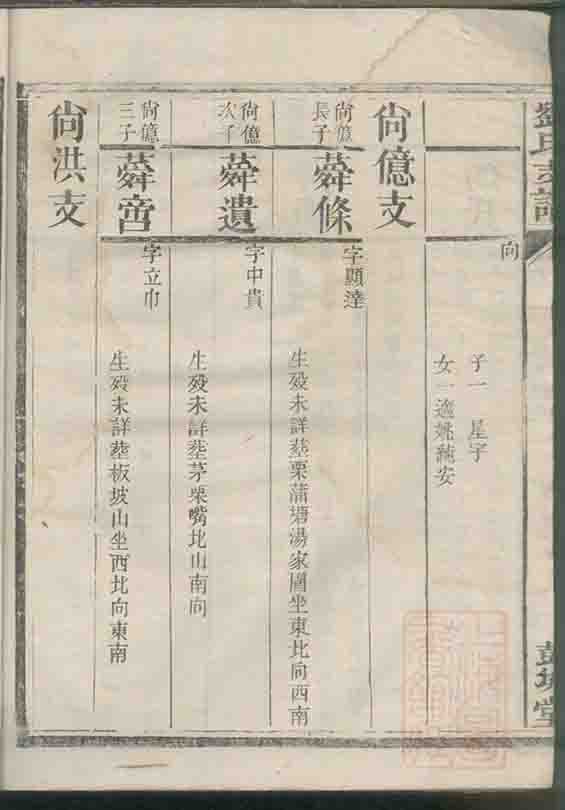 劉氏支譜
彭城堂
向
子一 星字
女一適姚純安
尙億支
尙億長子
蕣條
字顯達
生殁未詳塟栗蒲塘湯家圍坐東北向西南
尙億次子
蕣遺
字中貴
生殁未詳塟茅栗嘴北山南向
尙億三子
蕣啻
字立巾
生殁未詳塟板坡山坐西北向東南
尙洪支